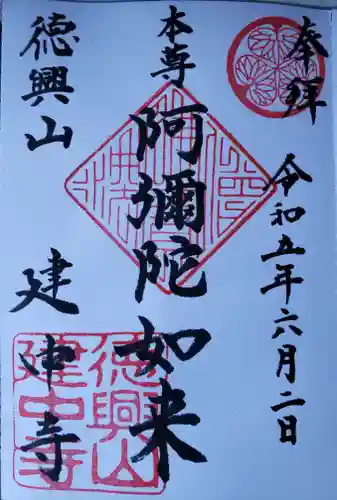 奉拝
令和五年六月二日
本尊
阿彌陀如来
德興山
建中寺
德興山
建中寺